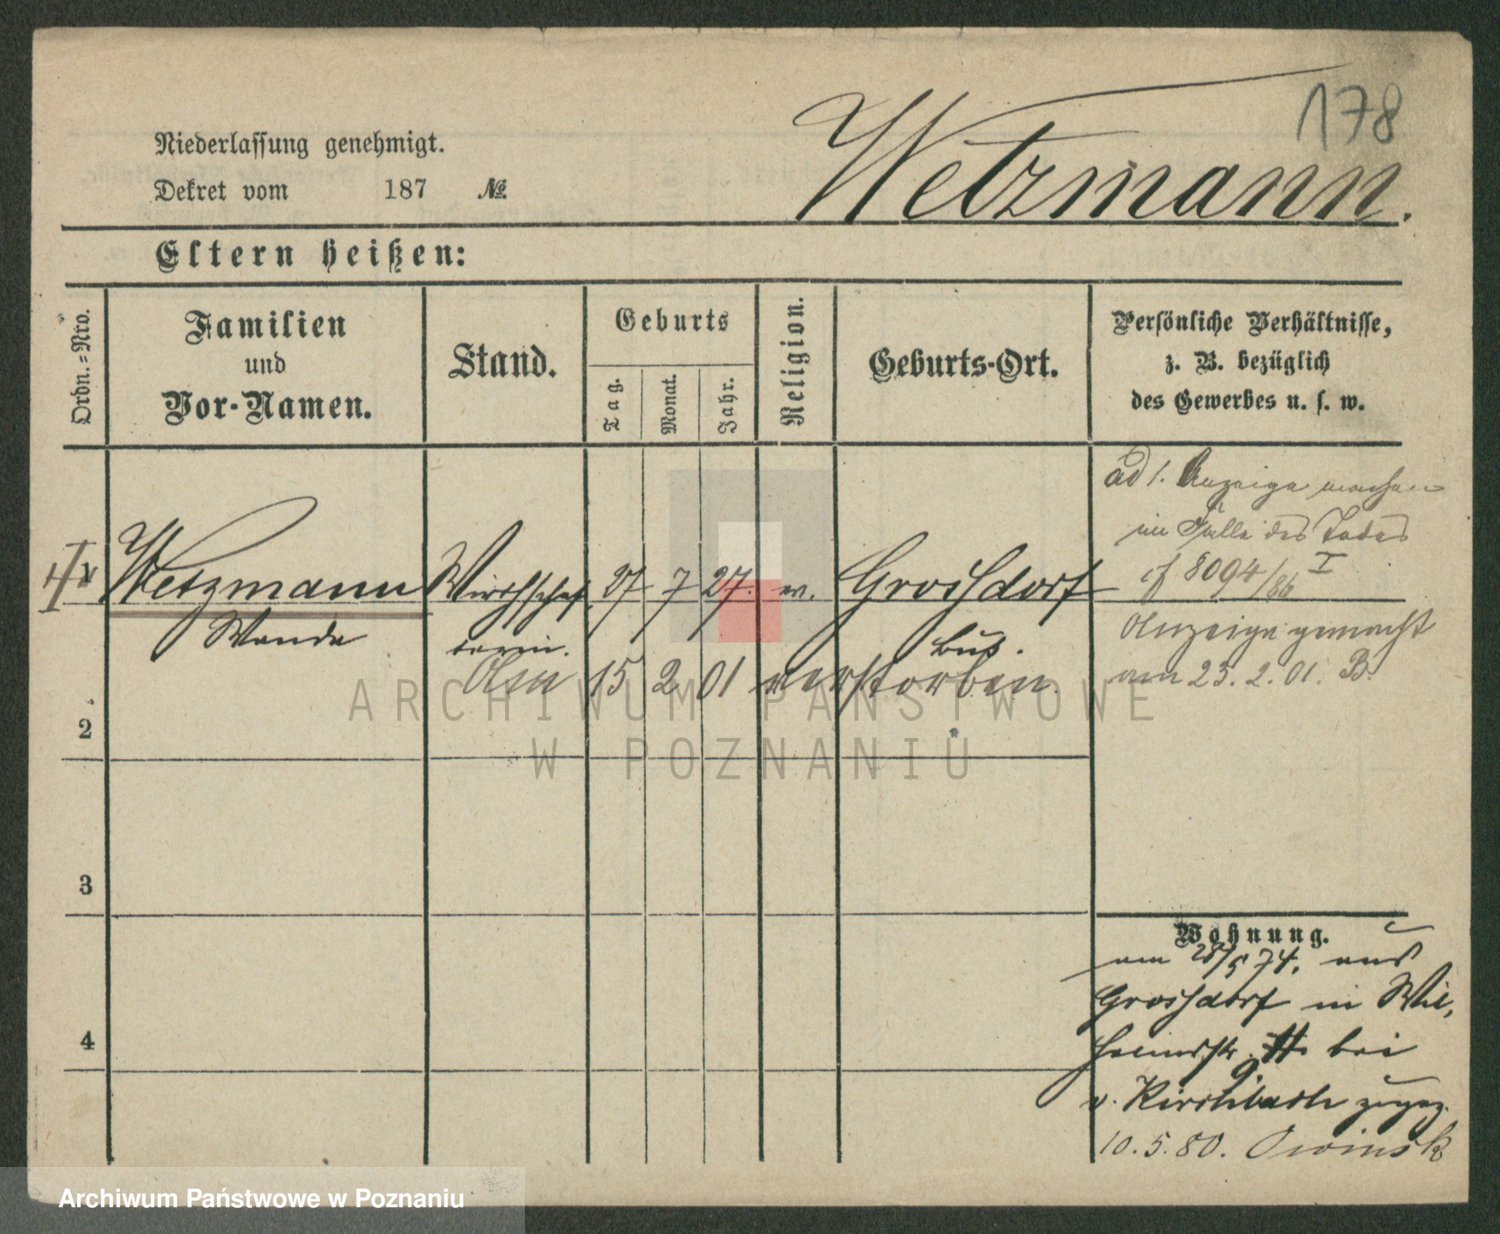 178
Niederlassung genehmigt.
Dekret vom 187 №
Wetzmann.
Eltern heißen:
Ordn.-Nro.
Familien
und
Vor-Namen.
Stand.
Geburts
Tag.
Monat.
Jahr.
Religion.
Geburts-Ort.
Persönliche Verhältnisse,
z. B. bezüglich
des Gewerbes u. s. w.
ad 1. Anzeige machen
im Falle des Todes
cf 8094/86 I
1 Wetzmann Wirthschaf 27 7 27. ev. Groshdorf
Wanda terin. bus.
Anzeige gemacht
am 23. 2. 01. B.
15 2 01 verstorben.
2
3
4
Wohnung.
am 28/5 74. aus
Groshdorf in Wil,
helmsstr. bei
9.
v. Kirchbach zugez.
10. 5. 80. Owinsk
ARCHIWUM PAŃSTWOWE
W POZNANIU
Archiwum Państwowe w Poznaniu